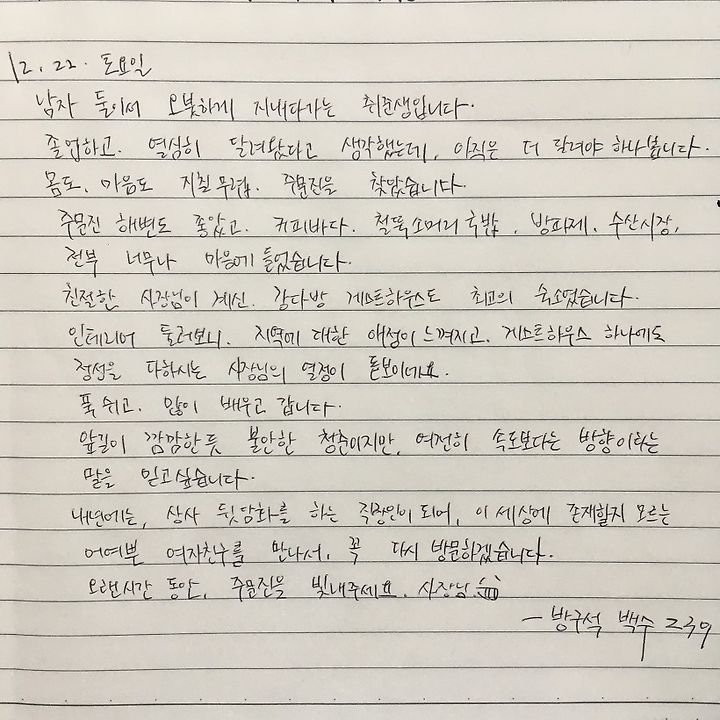 12. 22. 토요일
남자 둘이서 오붓하게 지내다가는 취준생입니다.
졸업하고. 열심히 달려왔다고 생각했는데, 아직은 더 달려야 하나봅니다.
몸도. 마음도 지칠 무렵. 주문진을 찾았습니다.
주문진 해변도 좋았고. 커피바다. 철뚝소머리국밥. 방파제. 수산시장,
전부 너무나 마음에 들었습니다.
친절한 사장님이 계신. 강다방 게스트하우스도 최고의 숙소였습니다.
인테리어 둘러보니. 지역에 대한 애정이 느껴지고. 게스트하우스 하나에도
정성을 다하시는 사장님의 열정이 돋보이네요.
푹 쉬고. 많이 배우고 갑니다.
앞길이 깜깜한 듯 불안한 청춘이지만, 여전히 속도보다는 방향이라는
말을 믿고싶습니다.
내년에는, 상사 뒷담화를 하는 직장인이 되어, 이 세상에 존재할지 모르는
어여쁜 여자친구를 만나서, 꼭 다시 방문하겠습니다.
오랜시간 동안, 주문진을 빛내주세요. 사장님
- 방구석 백수